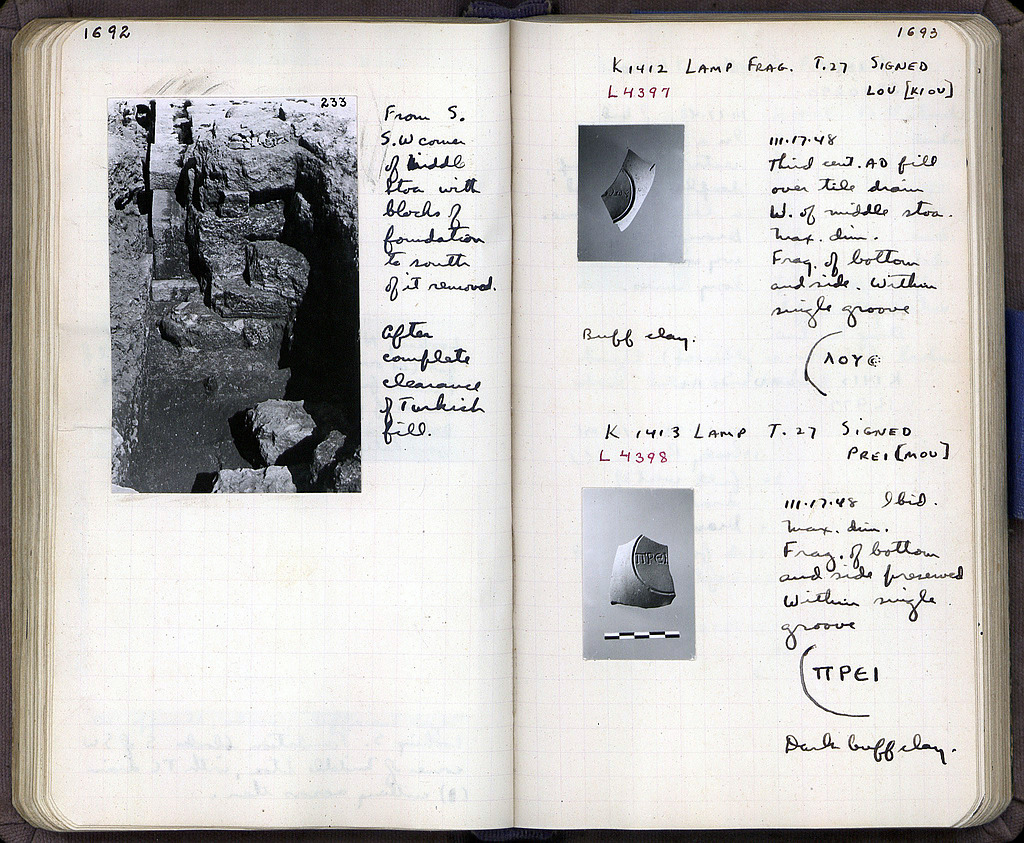 1692
233
From S.
S.W corner
of middle
Stoa with
blocks of
foundation
to south
of it removed.
After
complete
clearance
of Turkish
fill.
1693
K 1412 LAMP FRAG. T.27 SIGNED
L 4397 LOU [KIOU]
III.17.48
Third cent. AD fill
over tile drain
W. of middle stoa.
Max. dim.
Frag. of bottom
and side. Within
single groove
Buff clay.
ΛΟΥϾ
K 1413 LAMP T.27 SIGNED
L 4398 PREI [MOU]
III.17.48 Ibid.
Max. dim.
Frag. of bottom
and side preserved
Within single
groove
ΠΡΕΙ
ΠΡΕΙ
Dark buff clay.